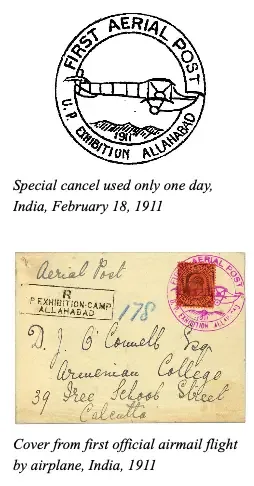 FIRST AERIAL POST
1911
U. P. EXHIBITION ALLAHABAD
Special cancel used only one day,
India, February 18, 1911
Aerial Post
FIRST AERIAL POST
1911
U. P. EXHIBITION ALLAHABAD
R
P. EXHIBITION-CAMP
ALLAHABAD
178
D. J. O'Connell Esq
Armenian College
39 Free School Street
Calcutta
Cover from first official airmail flight
by airplane, India, 1911